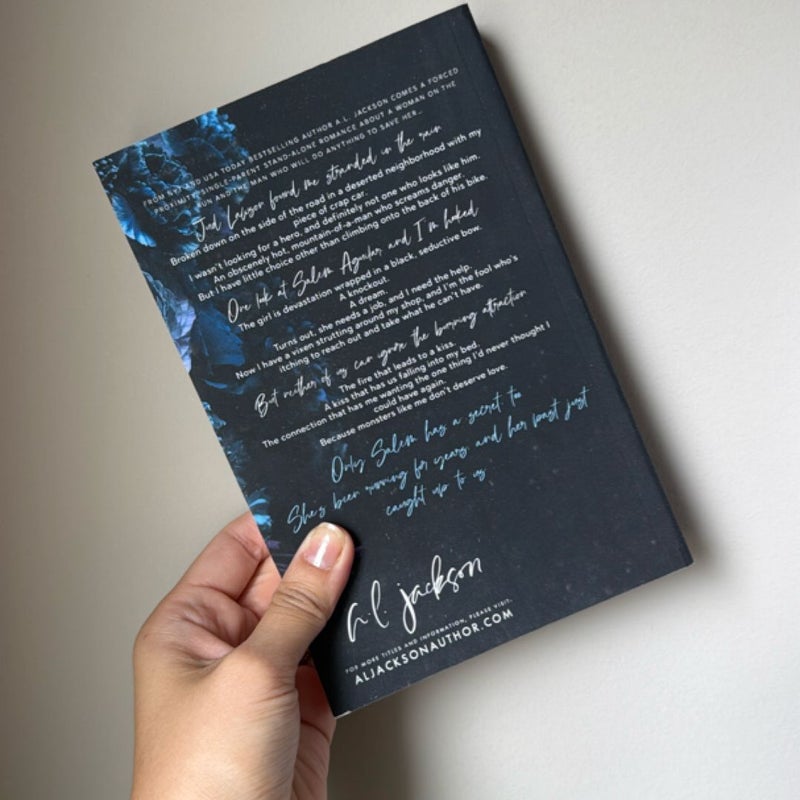 FROM NYT AND USA TODAY BESTSELLING AUTHOR A.L. JACKSON COMES A FORCED
PROXIMITY, SINGLE-PARENT STAND-ALONE ROMANCE ABOUT A WOMAN ON THE
RUN AND THE MAN WHO WILL DO ANYTHING TO SAVE HER...
Jud Lawson found me stranded in the rain
Broken down on the side of the road in a deserted neighborhood with my
piece of crap car.
I wasn't looking for a hero, and definitely not one who looks like him.
An obscenely hot, mountain-of-a-man who screams danger.
But I have little choice other than climbing onto the back of his bike.
One look at Salem Aguilar and I'm hooked
The girl is devastation wrapped in a black, seductive bow.
A knockout.
A dream.
Turns out, she needs a job, and I need the help.
Now I have a vixen strutting around my shop, and I'm the fool who's
itching to reach out and take what he can't have.
But neither of us can ignore the burning attraction
The fire that leads to a kiss.
A kiss that has us falling into my bed.
The connection that has me wanting the one thing I'd never thought I
could have again.
Because monsters like me don't deserve love.
Only Salem has a secret to
She's been running for years, and her past just
caught up to us
a.l. jackson
FOR MORE TITLES AND INFORMATION, PLEASE VISIT,
ALJACKSONAUTHOR.COM